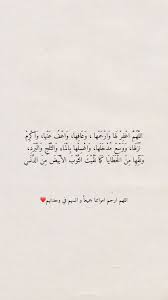 اللَّهُمَّ اغْفِرْ لَهَا وَارْحَمْهَا ، وَعَافِهَا، وَاعْفُ عَنْهَا، وَأَكْرِمْ
نُزُلَهَا، وَوَسِّعْ مُدْخَلَهَا، وَاغْسِلْهَا بِالْمَاءِ، وَالثَّلْجِ وَالْبَرَدِ،
وَنَقِّهَا مِنَ الْخَطَايَا كَمَا نَقَّيْتَ الثَّوْبَ الْأَبْيَضَ مِنَ الدَّنَسِ
اللهم ارحم امواتنا جميعاً و انسهم في وحدتهم❤️